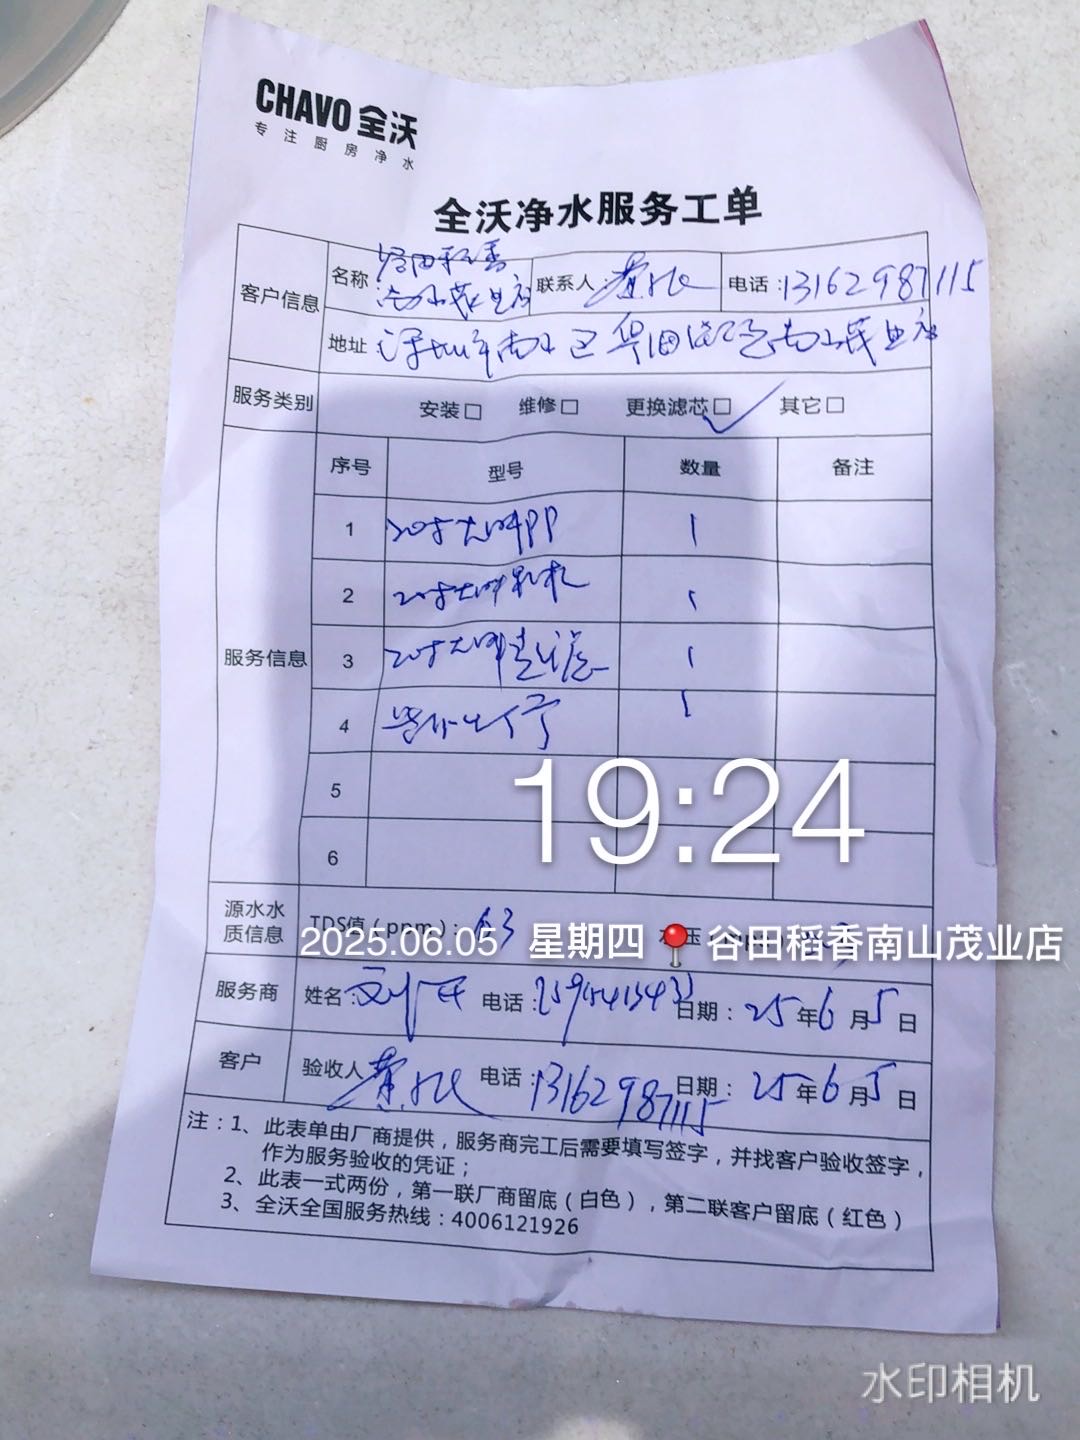 CHAVO 全沃
专注厨房净水
全沃净水服务工单
客户信息 名称 谷田稻香南山茂业店 联系人: 黄 电话: 13162987115
地址 深圳市南山区 南山茂业店
服务类别 安装□ 维修□ 更换滤芯□ ✓ 其它□
服务信息 序号 型号 数量 备注
1 20寸大胖PP 1
2 20寸大胖 1
3 20寸大胖 1
4 1
5
6
19:24
源水水质信息 TDS值(ppm): 63
2025.06.05 星期四 📍 谷田稻香南山茂业店
服务商 姓名: 刘 电话: 日期: 25年6月5日
客户 验收人 黄 电话: 13162987115 日期: 25年6月5日
注:1、此表单由厂商提供,服务商完工后需要填写签字,并找客户验收签字,
作为服务验收的凭证;
2、此表一式两份,第一联厂商留底(白色),第二联客户留底(红色)
3、全沃全国服务热线:4006121926
水印相机